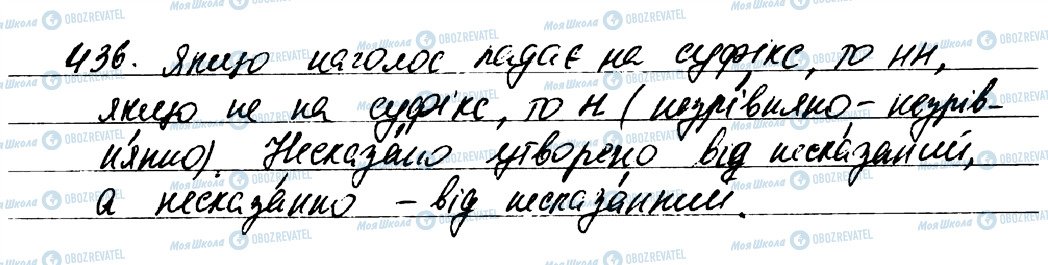 436. Якщо наголос падає на суфікс, то нн,
якщо не на суфікс, то н (незрі́вняно – незрів-
ня́нно). Неска́зано утворено від неска́заний,
а несказа́нно – від несказа́нний.